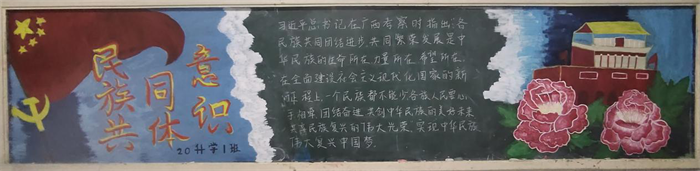 民族共
同体
意识
20科学1班
习近平总书记在广西考察时指出:各
民族共同团结进步、共同繁荣发展是中
华民族的生命所在、力量所在、希望所在。
在全面建设社会主义现代化国家的新
征程上,一个民族都不能少各族人民要心
手相牵、团结奋进,共创中华民族的美好未来,
共享民族复兴的伟大光荣,实现中华民族
伟大复兴中国梦。